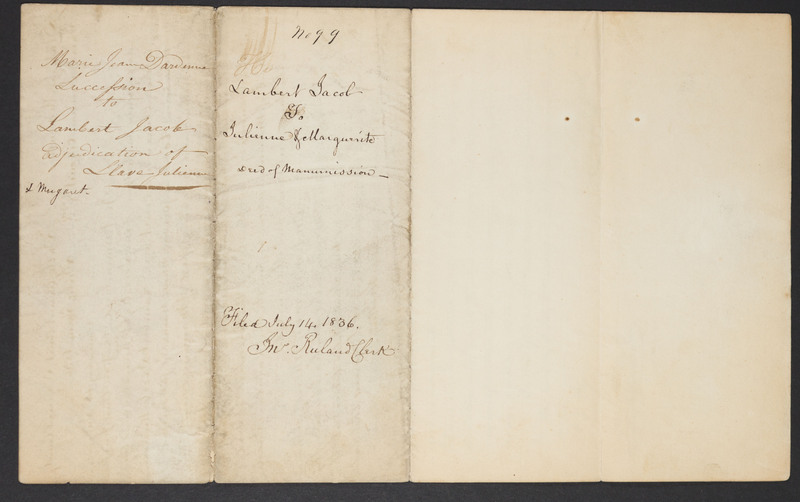 Marie Jeanne Dardenne
Succession
to
Lambert Jacob
adjudication of
Slave Julienne
& Margaret.
No 99
Lambert Jacob
To
Julienne & Marguerite
deed of Manumission
Filed July 14. 1836.
Jno. Ruland Clerk